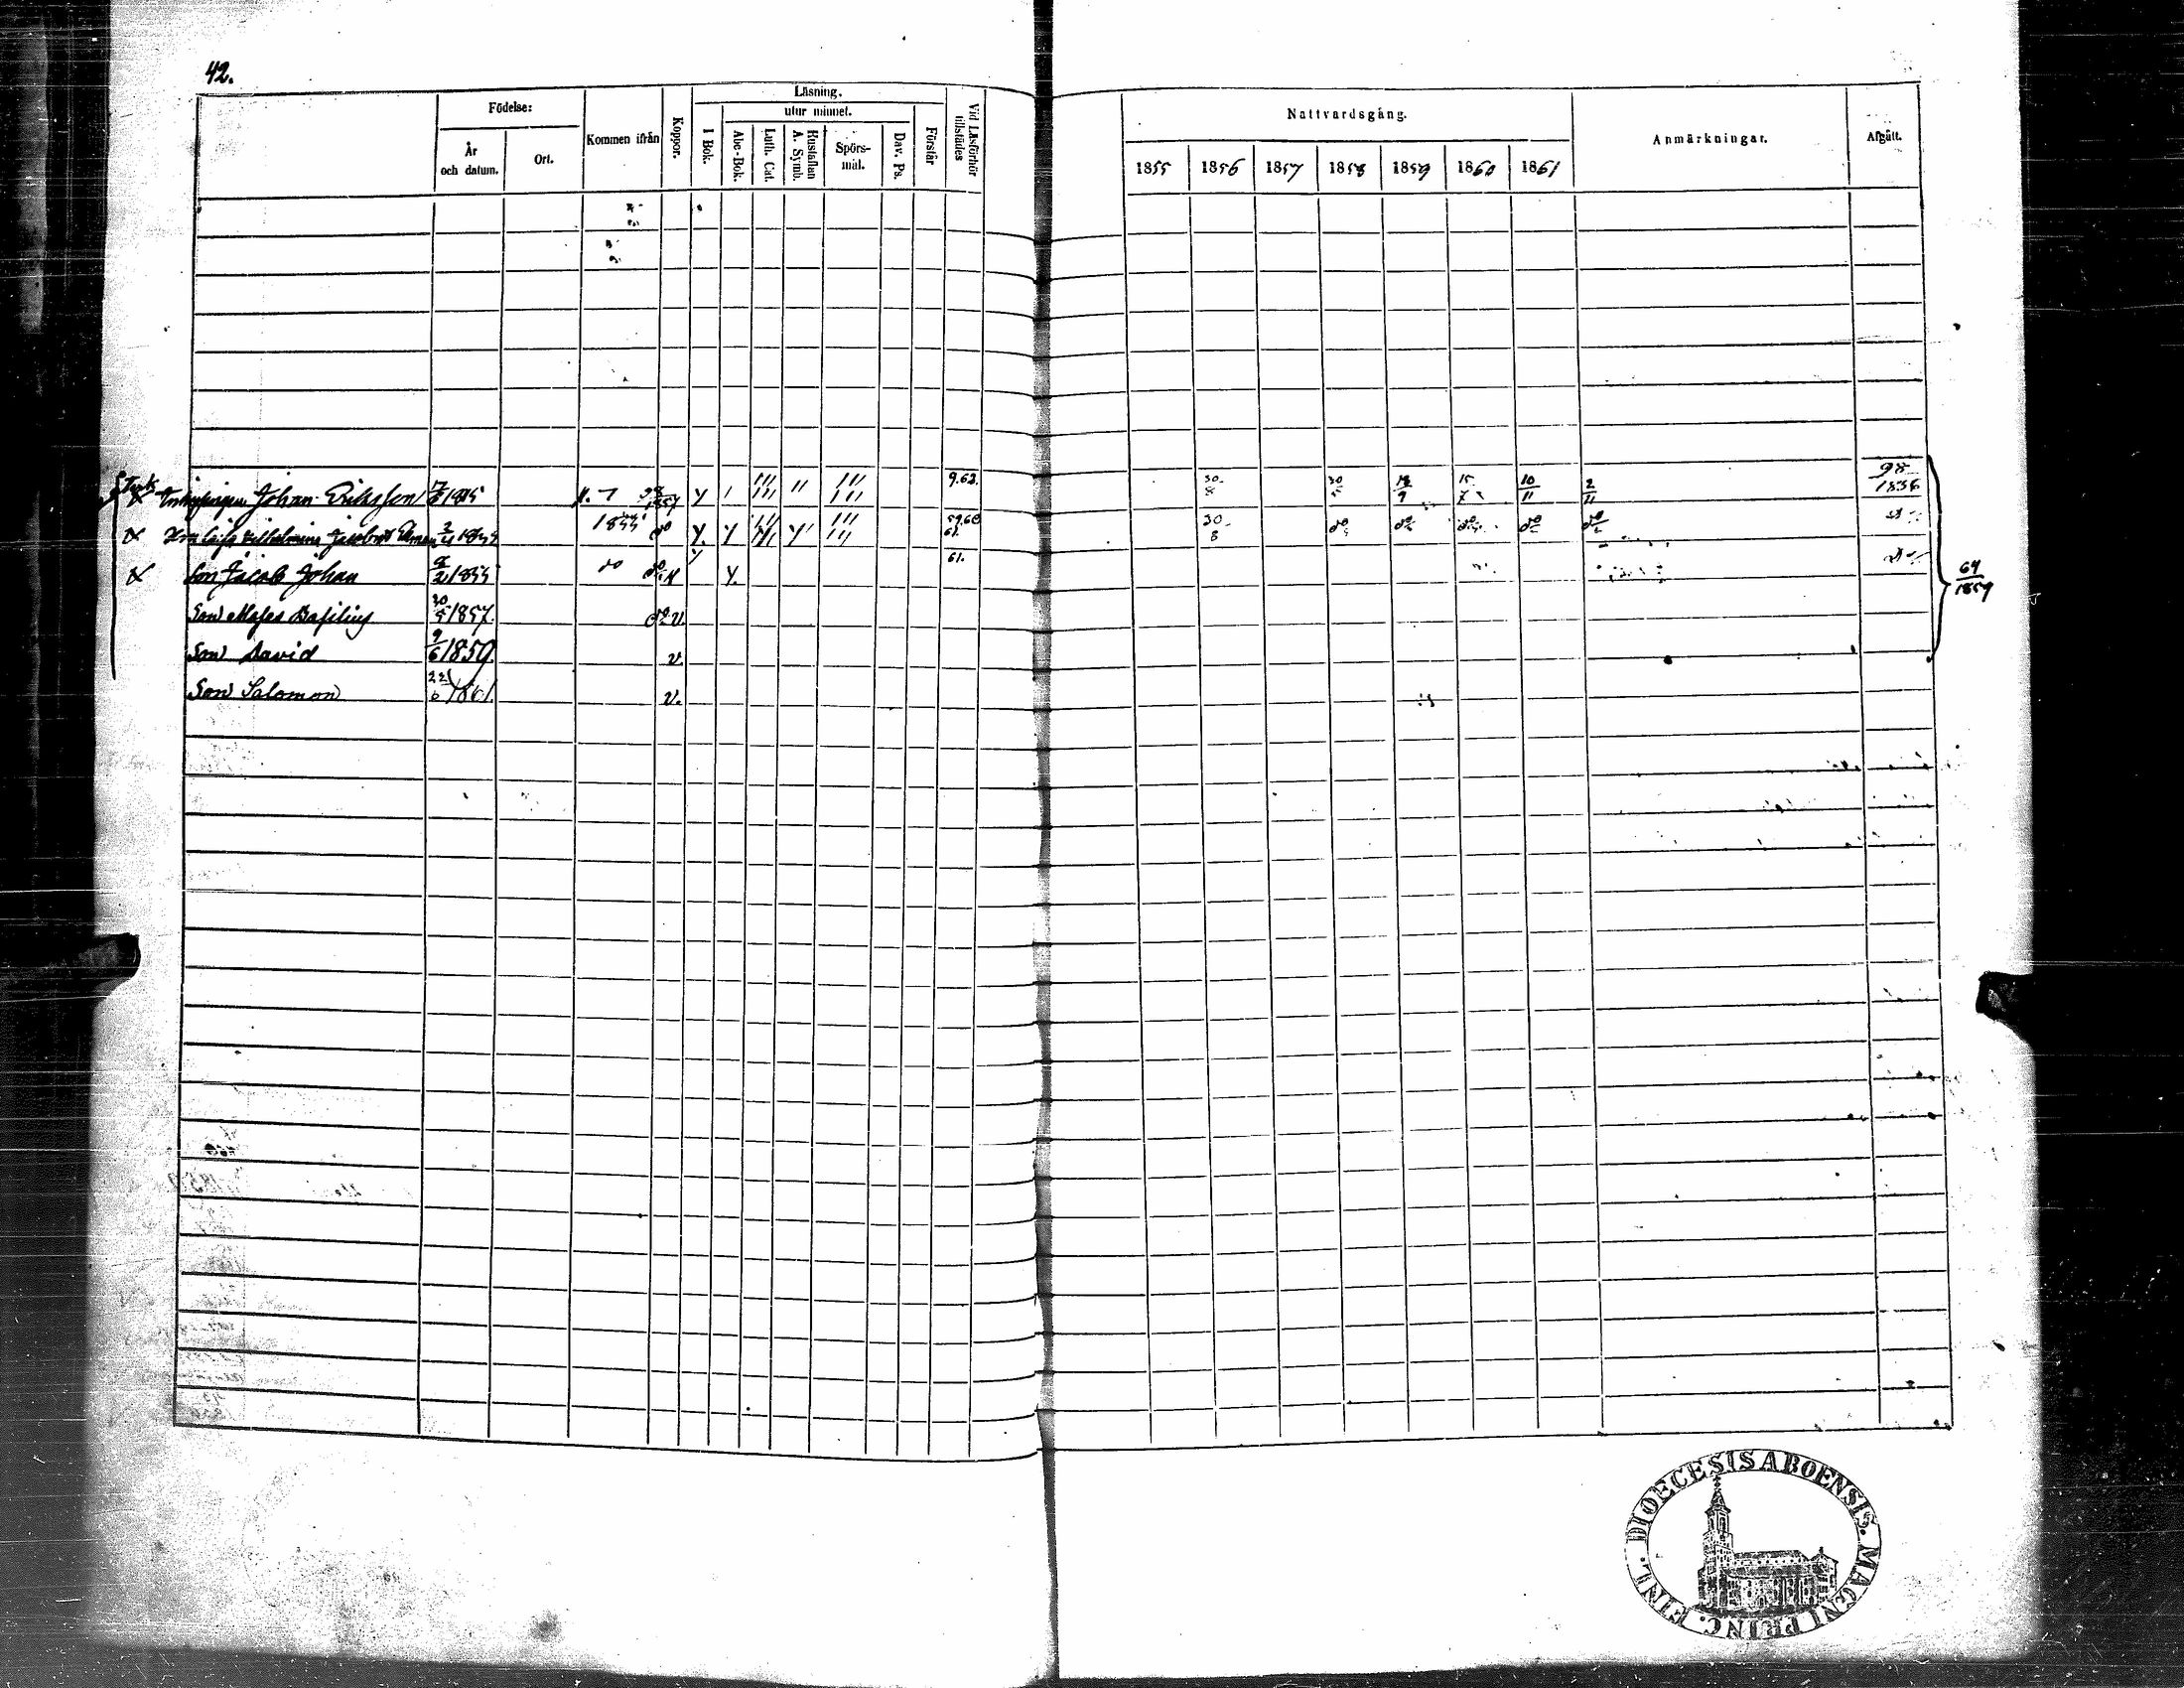 42.
Födelse:
År och datum.
Ort.
Kommen ifrån
Koppor.
Läsning.
I Bok.
utur minnet.
Abc-Bok.
Luth. Cat.
Hustaflan A. Symb.
Spörs-mål.
Dav. Ps.
Förstår
Vid Läsförhör tillstädes
Nattvardsgång.
1855 1856 1857 1858 1859 1860 1861
Anmärkningar.
Afgått.
Johan Eriksson 1857 y 9.62. 30/8 30/5 18/9 15/7 10/11 2/11 98/1856
Vilhelmina Jacobsd 1855 do y. y 59.60 61. 30/8 do do do do do
Son Jacob Johan 1855 do y y. 61.
Son Moses Basilius 30/5 1857. do v.
Son David 9/6 1859. v.
Son Salomon 1861. v.
64/1859
DIOECESIS ABOENSIS. MAGNI PRINC. FINL.